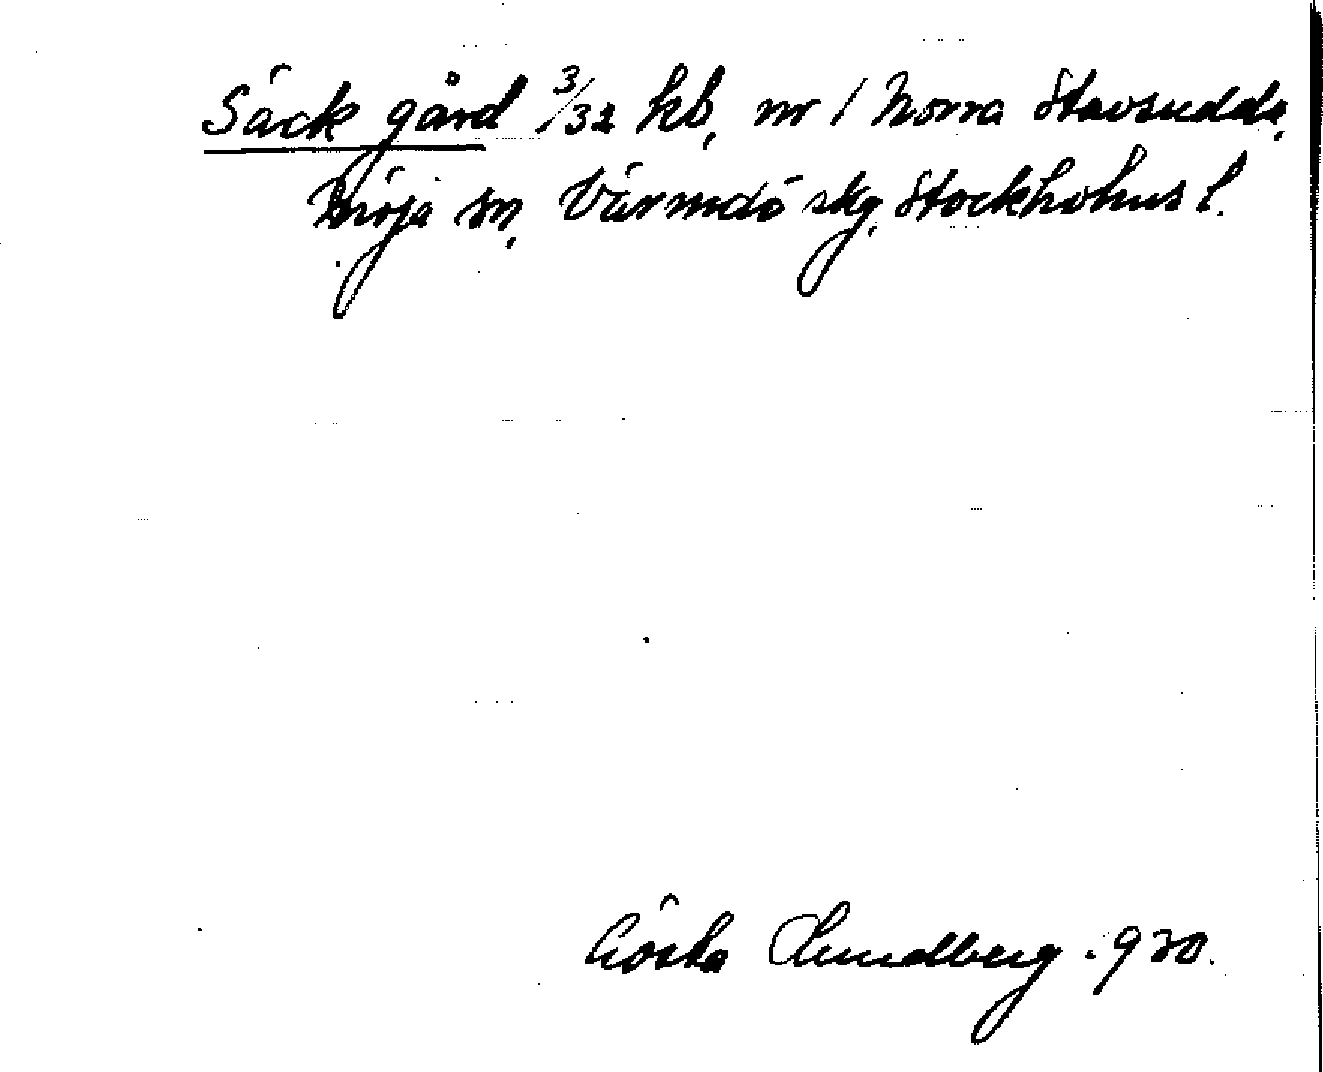 Säck gård 3/32 hb, nr 1 Norra Stavsudda,
Möja sn, Värmdö skg, Stockholms l.
Gösta Lundberg. 930.